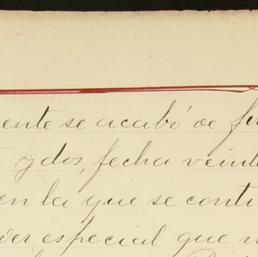 ente se acabó de fir
y dos, fecha veint
en la que se conti
der especial que m